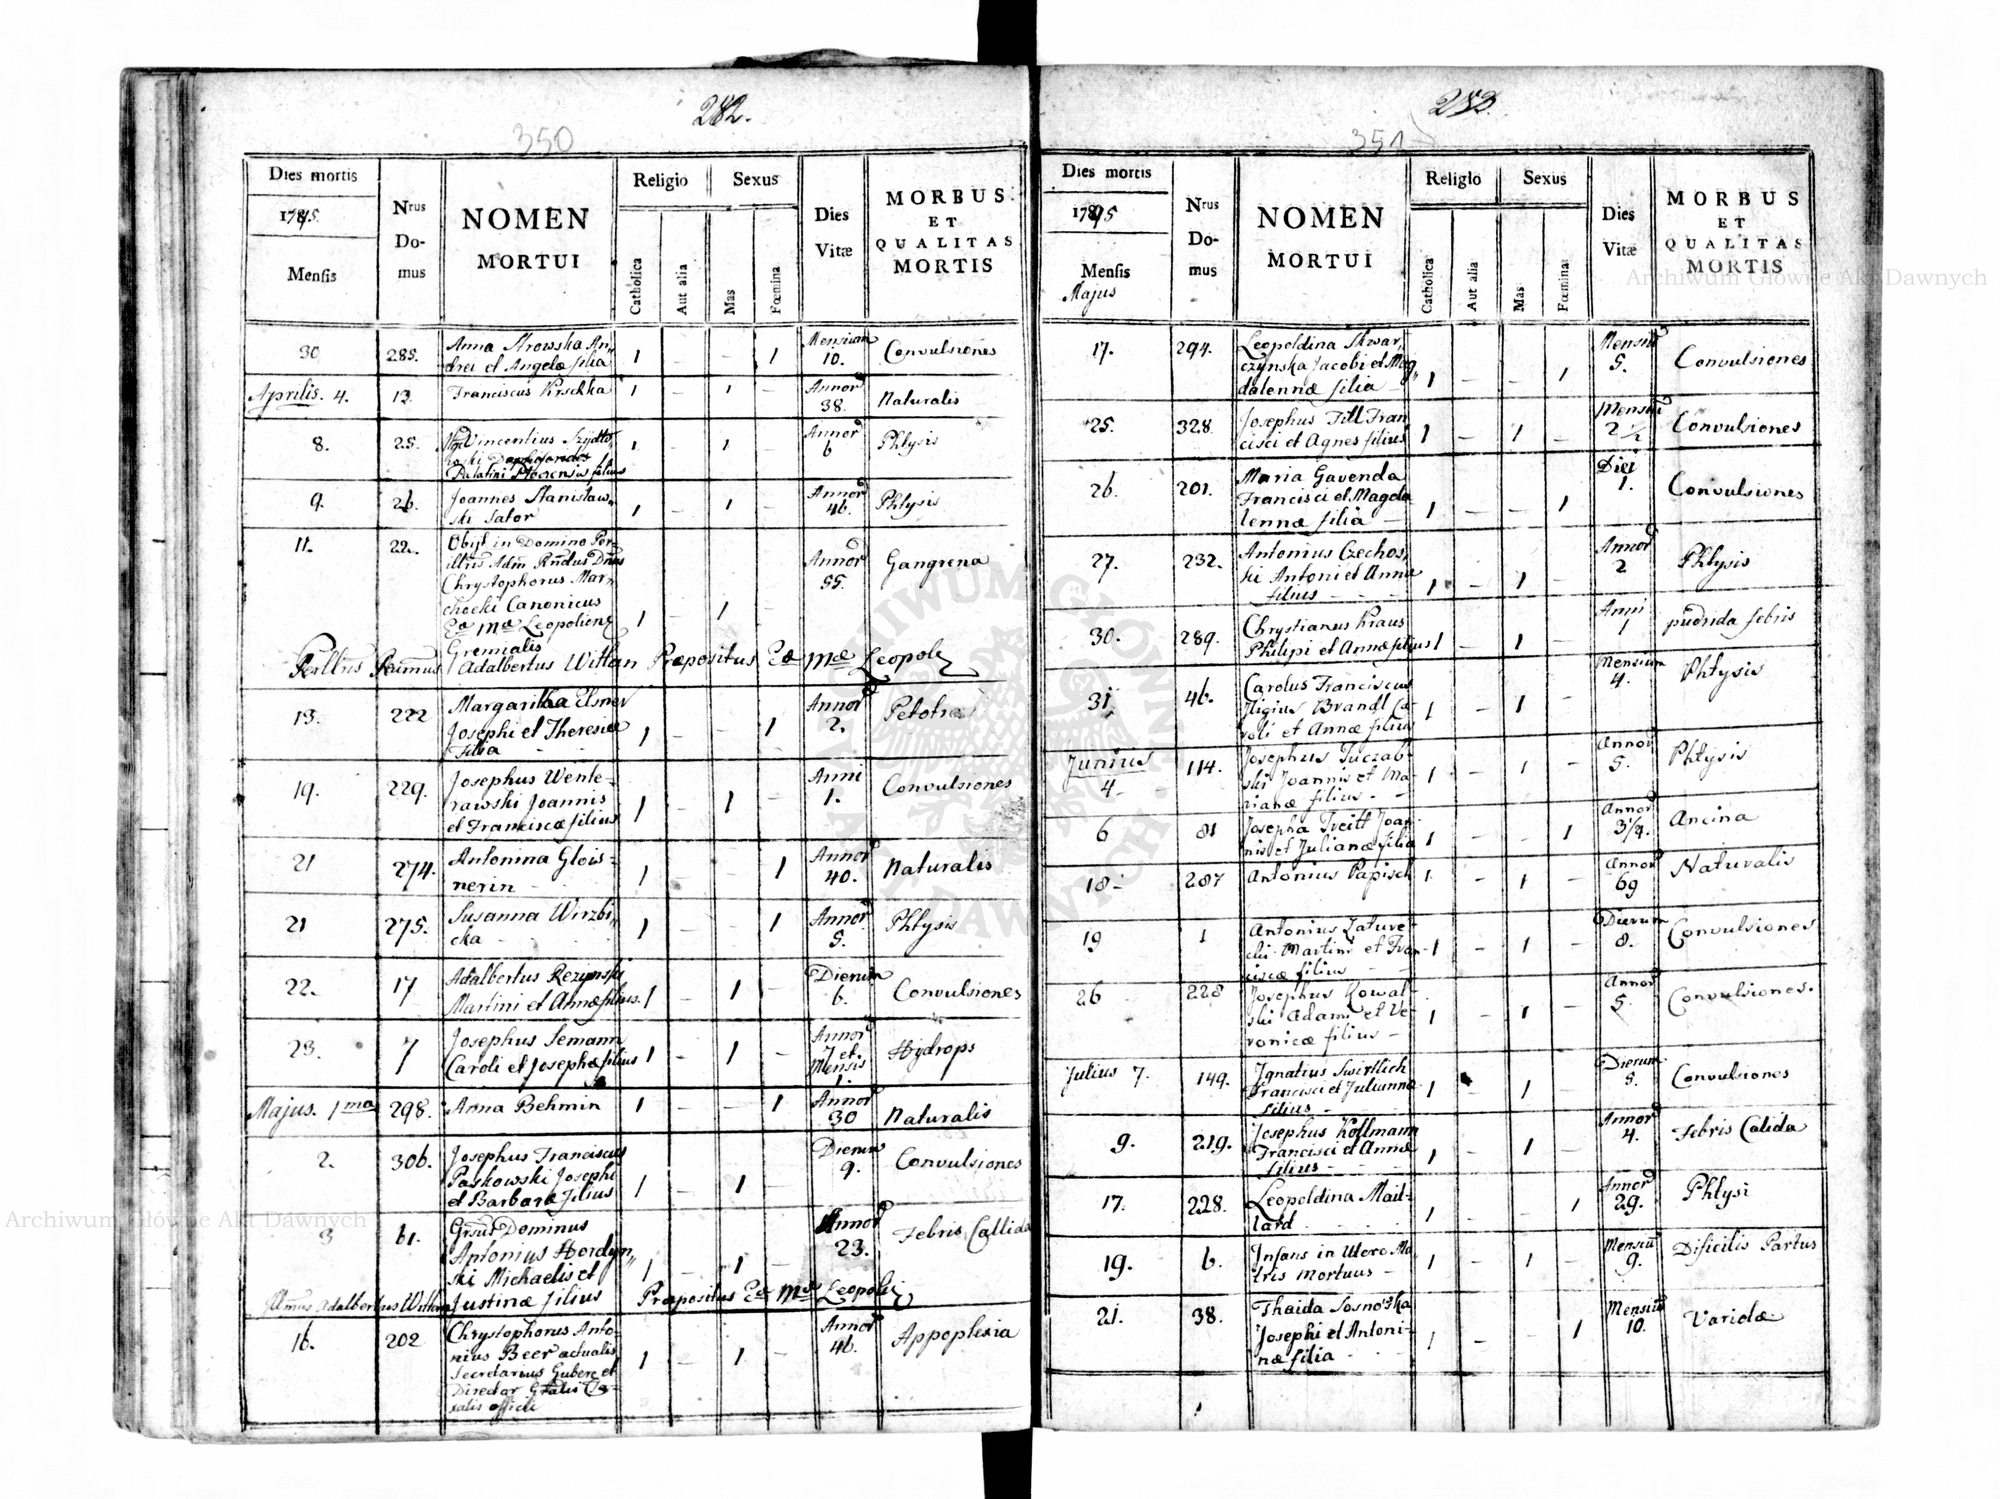 282.
350
Dies mortis
1795.
Mensis
Nrus
Do-
mus
NOMEN
MORTUI
Religio
Sexus
Catholica
Aut alia
Mas
Fœmina
Dies
Vitæ
MORBUS
ET
QUALITAS
MORTIS
30 285. Anna Strowska An„ 1 – – 1 Mensium 10. Convulsiones
drei et Angelæ filia
Aprilis. 4. 13. Franciscus Krschka 1 – 1 – Annor 38. Naturalis
8. 25. Vincentius 1 – 1 – Annor 6 Phtysis
Palatini filius
9. 26. Joannes Stanislaw„ 1 – 1 – Annor 46. Phtysis
ski Sator
11. 22. Obijt in Domino Per„ Annor 55. Gangrena
illris Adm Rndus Dnus
Chrystophorus Mar„
chocki Canonicus 1 – 1 –
Eæ Mæ Leopolien
Gremialis
Perillris Adalbertus Wittan Præpositus Eæ Mæ Leopol
13. 222 Margaritha Elsner Annor 2.
Josephi et Theresiæ 1 – – 1
Filia
19. 229. Josephus Wente- Anni 1. Convulsiones
rawski Joannis 1 – 1 –
et Franciscæ filius
21 274. Antonina Glois- 1 – – 1 Annor 40. Naturalis
nerin
21 275. Susanna Wirzbi„ 1 – – 1 Annor 5. Phtysis
cka
22. 17 Adalbertus Rezynski Dierum 6. Convulsiones
Martini et Annæ filius. 1 – 1 –
23. 7 Josephus Semann Annor 7 et Mensis 1. Hydrops
Caroli et Josephæ filius 1 – 1 –
Majus. 1ma 298. Anna Behmin 1 – – 1 Annor 30 Naturalis
2. 306. Josephus Franciscus Dierum 9. Convulsiones
Paskowski Josephi 1 – 1 –
et Barbaræ filius
3 61. Dominus Annor 23. Febris Callida
Antonius Hordyn„
ski Michaelis et 1 – 1 –
Justinæ filius
Adalbertus Wittan Præpositus Eæ Mæ Leopoli
16. 202 Chrystophorus Anto- Annor 46. Appoplexia
nius Beer actualis 1 – 1 –
Secretarius Guber et
Director
officii
283.
351
Dies mortis
1795
Mensis
Majus
Nrus
Do-
mus
NOMEN
MORTUI
Religio
Sexus
Catholica
Aut alia
Mas
Fœmina
Dies
Vitæ
MORBUS
ET
QUALITAS
MORTIS
17. 294. Leopoldina Skwar„ Mensiu 5. Convulsiones
czynska Jacobi et Mag„ 1 – – 1
dalennæ filia
25. 328. Josephus Till Fran Mensiu 2 1/2 Convulsiones
cisci et Agnes filius 1 – 1 –
26. 201. Maria Gavenda Diei 1. Convulsiones
Francisci et Magda
lennæ filia 1 – – 1
27. 232. Antonius Czechos, Annor 2 Phtysis
ki Antoni et Anna
filius 1 – 1 –
30. 289. Chrystianus Kraus Anni 1 putrida febris
Philipi et Annæ filius 1 – 1 –
31. 46. Carolus Franciscus Mensium 4. Phtysis
Brandl Ca- 1 – 1 –
roli et Annæ filius
Junius 4 114. Josephus Tuczab- Annor 5. Phtysis
ski Joannis et Ma- 1 – 1 –
rianæ filius
6 81 Josepha Treitl Joan Annor 3/4. Ancina
nis et Julianæ filia 1 – – 1
18 287 Antonius Papisch 1 – 1 – Annor 69 Naturalis
19 1 Antonius Zature- Dierum 8. Convulsiones
cki Martini et Fran- 1 – 1 –
ciscæ filius
26 228 Josephus Kowal- Annor 5. Convulsiones.
ski Adami et Ve- 1 – 1 –
ronicæ filius
Julius 7. 149. Ignatius Swirtlich Dierum 5. Convulsiones
Francisci et Julianna 1 – 1 –
filius
9. 219. Josephus Hoffmann Annor 4. Febris Calida
Francisci et Annæ 1 – 1 –
filius
17. 228. Leopoldina Mail- Annor 29. Phtysi
lard 1 – – 1
19. 6. Infans in Utero Ma Mensiu 9. Dificilis Partus
tris Mortuus 1 – 1 –
21. 38. Thaida Sosnoska Mensiu 10. Variolæ
Josephi et Antoni- 1 – – 1
næ filia
Archiwum Główne Akt Dawnych
Archiwum Główne Akt Dawnych
ARCHIWUM GŁÓWNE AKT DAWNYCH